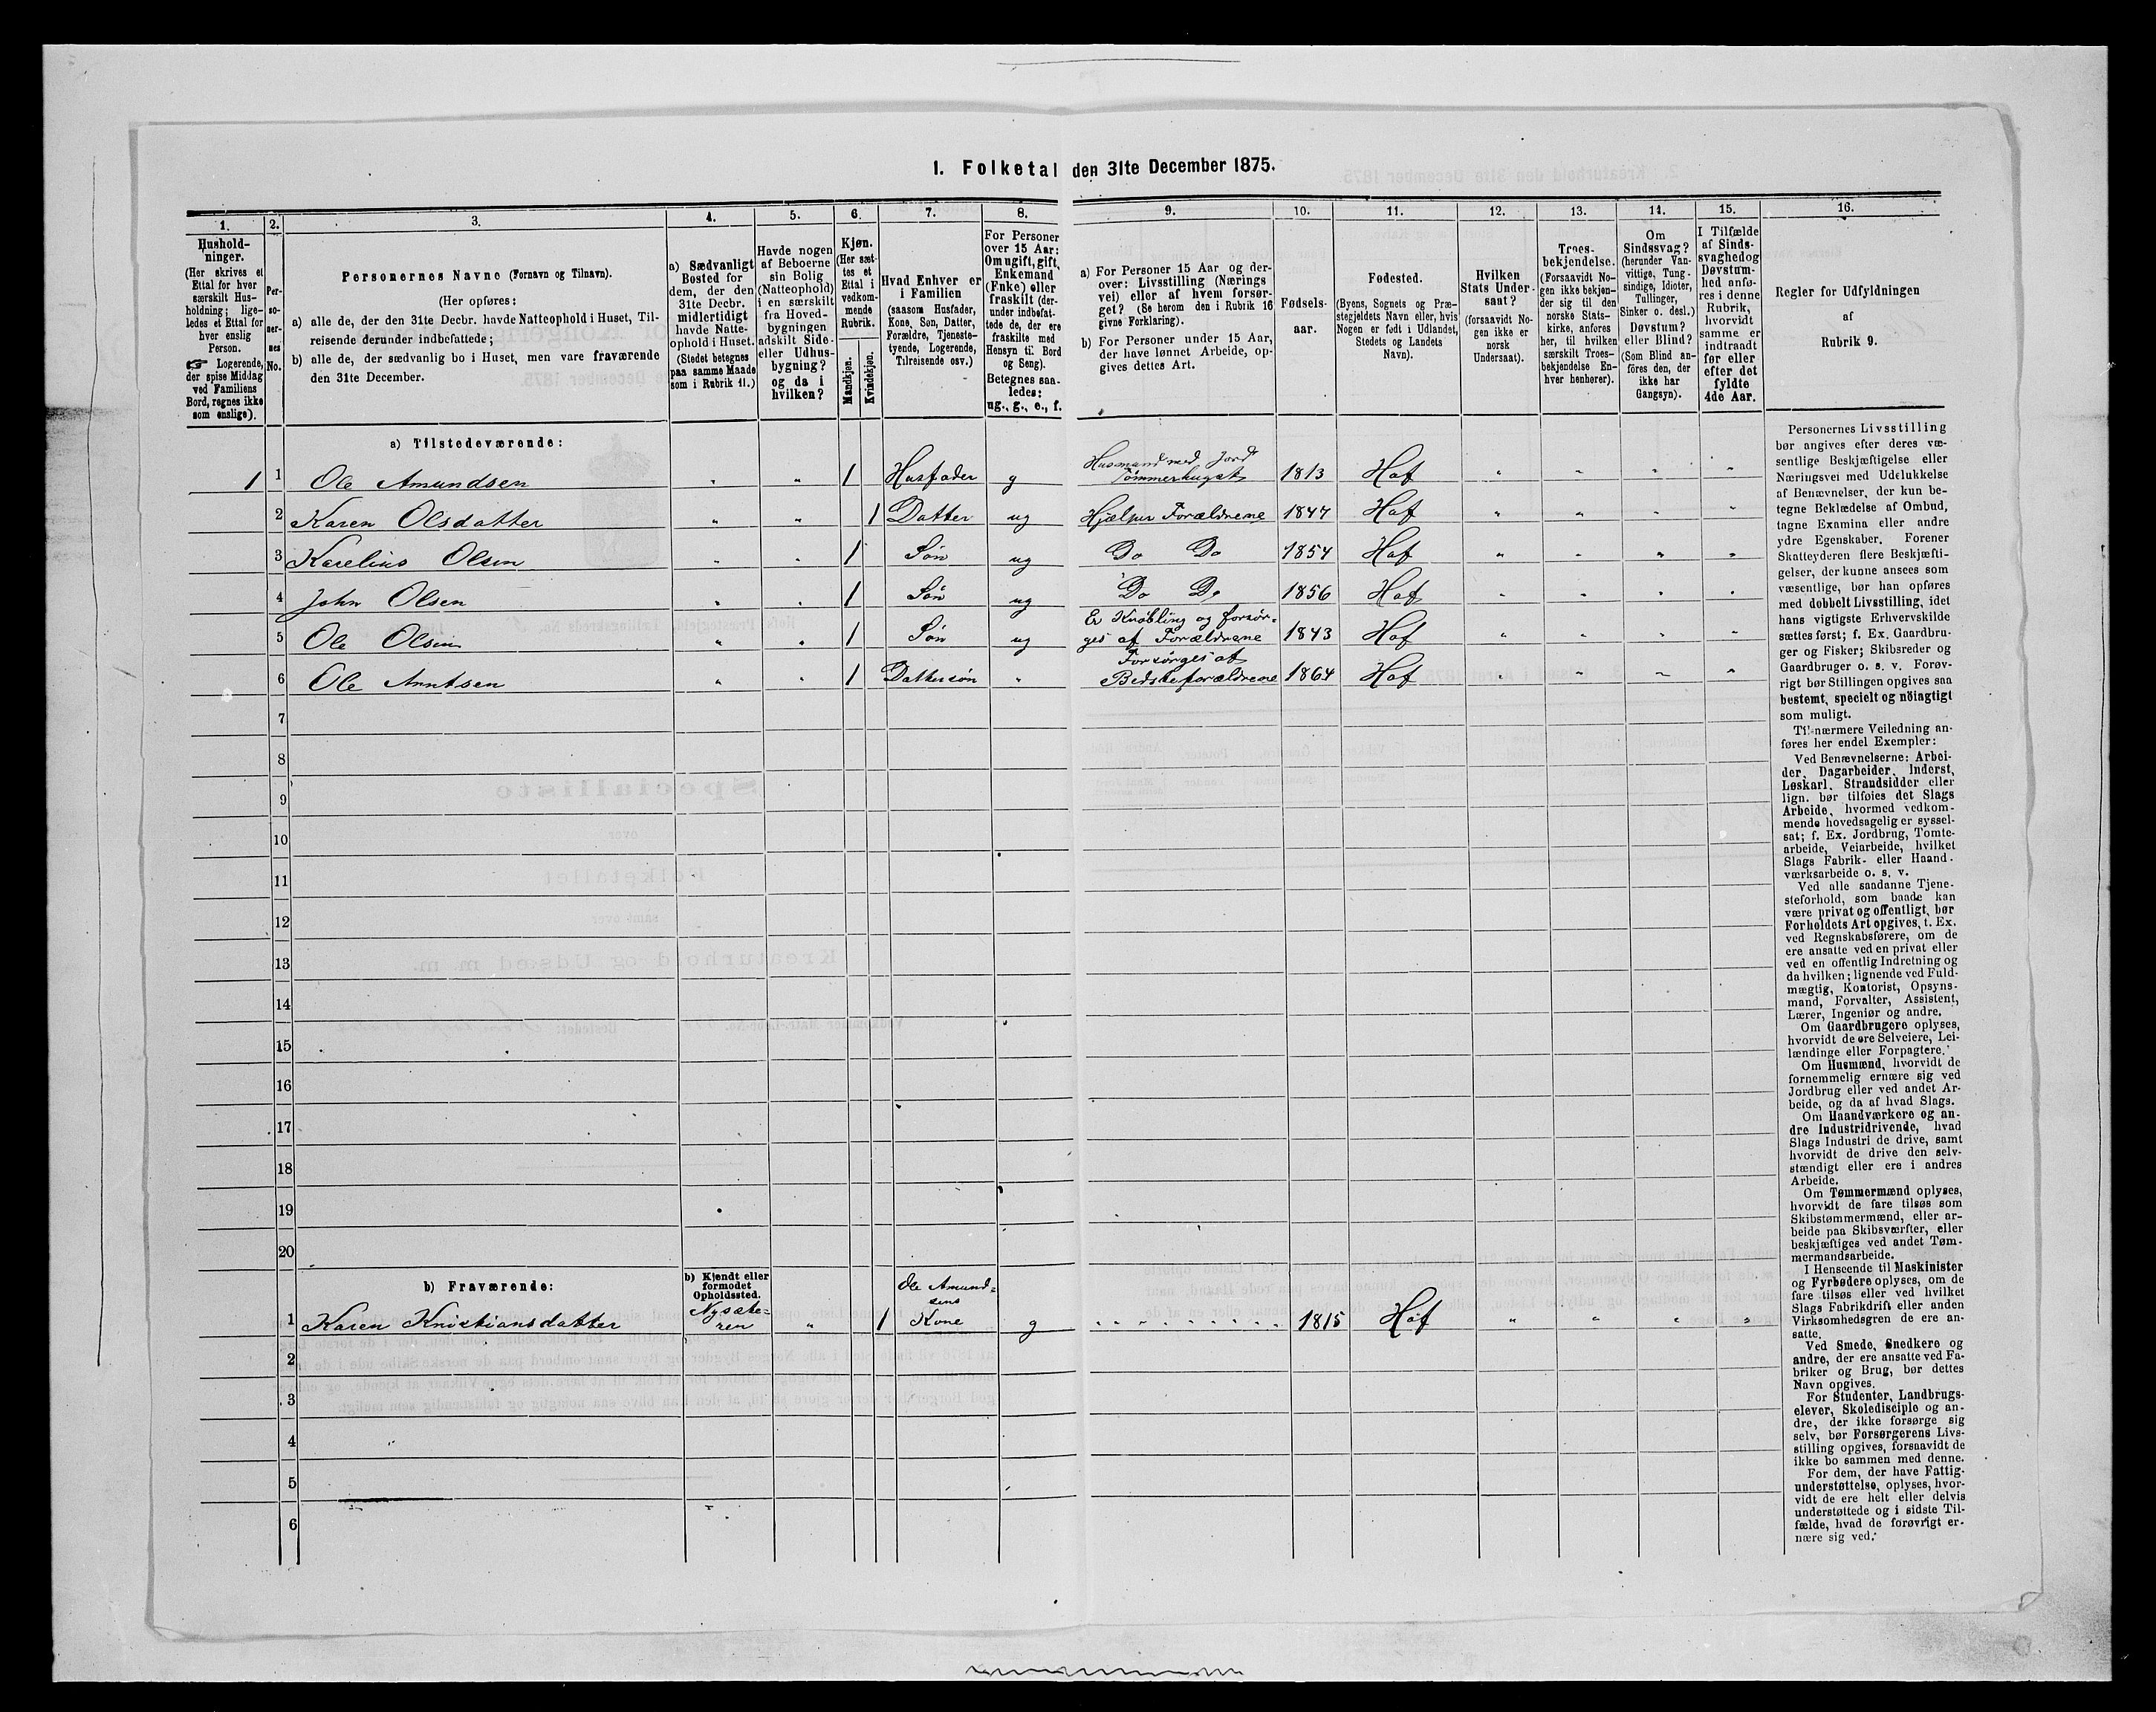 1. Folketal den 31te December 1875.
1.
2.
3.
4.
5.
6.
7.
8.
9.
10.
11.
12.
13.
14.
15.
16.
Hushold-
ninger.
(Her skrives et
Ettal for hver
særskilt Hus-
holdning; lige-
ledes et Ettal for
hver enslig
Person.
☞ Logerende,
der spise Middag
ved Familiens
Bord, regnes ikke
som enslige).
Per-
so-
ner-
nes
No.
Personernes Navne (Fornavn og Tilnavn).
(Her opføres:
a) alle de, der den 31te Decbr. havde Natteophold i Huset, Til-
reisende derunder indbefattede;
b) alle de, der sædvanlig bo i Huset, men vare fraværende
den 31te December.
a) Sædvanligt
Bosted for
dem, der den
31te Decbr.
midlertidigt
havde Natte-
ophold i Huset.
(Stedet betegnes
paa samme Maade
som i Rubrik 11.)
Havde nogen
af Beboerne
sin Bolig
(Natteophold)
i en særskilt
fra Hoved-
bygningen
adskilt Side-
eller Udhus-
bygning?
og da i
hvilken?
Kjøn.
(Her sæt-
tes et
Ettal i
vedkom-
mende
Rubrik.
Mandkjøn.
Kvindekjøn.
Hvad Enhver er
i Familien
(saasom Husfader,
Kone, Søn, Datter,
Forældre, Tjeneste-
tyende, Logerende,
Tilreisende osv.)
For Personer
over 15 Aar:
Om ugift, gift,
Enkemand
(Enke) eller
fraskilt (der-
under indbefat-
tede de, der ere
fraskilte med
Hensyn til Bord
og Seng).
Betegnes saa-
ledes:
ug., g., e., f.
a) For Personer 15 Aar og der-
over: Livsstilling (Nærings
vei) eller af hvem forsør-
get? (Se herom den i Rubrik 16
givne Forklaring).
b) For Personer under 15 Aar,
der have lønnet Arbeide, op-
gives dettes Art.
Fødsels-
aar.
Fødested.
(Byens, Sognets og Præ-
stegjeldets Navn eller, hvis
Nogen er født i Udlandet,
Stedets og Landets
Navn).
Hvilken
Stats Under-
saat?
(forsaavidt No-
gen ikke er
norsk
Undersaat).
Troes-
bekjendelse.
(Forsaavidt No-
gen ikke bekjen-
der sig til den
norske Stats-
kirke, anføres
her, til hvilken
særskilt Troes-
bekjendelse En-
hver henhører).
Om
Sindssvag?
(herunder Van-
vittige, Tung-
sindige, Idioter,
Tullinger,
Sinker o. desl.)
Døvstum?
eller Blind?
(Som Blind an-
føres den, der
ikke har
Gangsyn).
I Tilfælde
af Sinds-
svaghed og
Døvstum-
hed anfø-
res i denne
Rubrik,
hvorvidt
samme er
indtraadt
før eller
efter det
fyldte
4de Aar.
Regler for Udfyldningen
af
Rubrik 9.
a) Tilstedeværende:
1 1 Ole Amundsen " " 1 Husfader g Husmand med Jord Tømmerhugst 1813 Hof " " " "
2 Karen Olsdatter " " 1 Datter ug Hjælper Forældrene 1847 Hof " " " "
3 Karelius Olsen " " 1 Søn ug Do Do 1854 Hof " " " "
4 John Olsen " " 1 Søn ug Do Do 1856 Hof " " " "
5 Ole Olsen " " 1 Søn ug Er Krøbling og forsør-
ges af Forældrene 1843 Hof " " " "
6 Ole Arntsen " " 1 Dattersøn " Forsørges af
Bedsteforældrene 1864 Hof " " " "
7
8
9
10
11
12
13
14
15
16
17
18
19
20
b) Fraværende:
b) Kjendt eller
formodet
Opholdssted.
1 Karen Kristiansdatter Nysæte-
ren " 1 Ole Amund-
sens
Kone g " " " " " " " " " 1815 Hof " " " "
2
3
4
5
6
Personernes Livsstilling
bør angives efter deres væ-
sentlige Beskjæftigelse eller
Næringsvei med Udelukkelse
af Benævnelser, der kun be-
tegne Beklædelse af Ombud,
tagne Examina eller andre
ydre Egenskaber. Forener
Skatteyderen flere Beskjæfti-
gelser, der kunne ansees som
væsentlige, bør han opføres
med dobbelt Livsstilling, idet
hans vigtigste Erhvervskilde
sættes først; f. Ex. Gaardbru-
ger og Fisker; Skibsreder og
Gaardbruger o. s. v. Forøv-
rigt bør Stillingen opgives saa
bestemt, specielt og nöiagtigt
som muligt.
Til nærmere Veiledning an-
føres her endel Exempler:
Ved Benævnelserne: Arbei-
der, Dagarbeider, Inderst,
Løskarl, Strandsidder eller
lign. bør tilføies det Slags
Arbeide, hvormed vedkom-
mende hovedsagelig er syssel-
sat; f. Ex. Jordbrug, Tomte-
arbeide, Veiarbeide, hvilket
Slags Fabrik- eller Haand-
værksarbeide o. s. v.
Ved alle saadanne Tjene-
steforhold, som baade kan
være privat og offentligt, bør
Forholdets Art opgives, t. Ex.
ved Regnskabsførere, om de
ere ansatte ved en privat eller
ved en offentlig Indretning og
da hvilken; lignende ved Fuld-
mægtig, Kontorist, Opsyns-
mand, Forvalter, Assistent,
Lærer, Ingeniør og andre.
Om Gaardbrugere oplyses,
hvorvidt de ere Selveiere, Lei-
lændinge eller Forpagtere.
Om Husmænd, hvorvidt de
fornemmelig ernære sig ved
Jordbrug eller ved andet Ar-
beide, og da af hvad Slags.
Om Haandværkere og an-
dre Industridrivende, hvad
Slags Industri de drive, samt
hvorvidt de drive den selv-
stændigt eller ere i andres
Arbeide.
Om Tømmermænd oplyses,
hvorvidt de fare tilsøs som
Skibstømmermænd, eller ar-
beide paa Skibsværfter, eller
beskjæftiges ved andet Tøm-
mermandsarbeide.
I Henseende til Maskinister
og Fyrbødere oplyses, om de
fare tilsøs eller ved hvilket
Slags Fabrikdrift eller anden
Virksomhedsgren de ere an-
satte.
Ved Smede, Snedkere og
andre, der ere ansatte ved Fa-
briker og Brug, bør dettes
Navn opgives.
For Studenter, Landbrugs-
elever, Skoledisciple og an-
dre, der ikke forsørge sig
selv, bør Forsørgerens Livs-
stilling opgives, forsaavidt de
ikke bo sammen med denne.
For dem, der have Fattig-
understøttelse, oplyses, hvor-
vidt de ere helt eller delvis
understøttede og i sidste Til-
fælde, hvad de forøvrigt er-
nære sig ved.